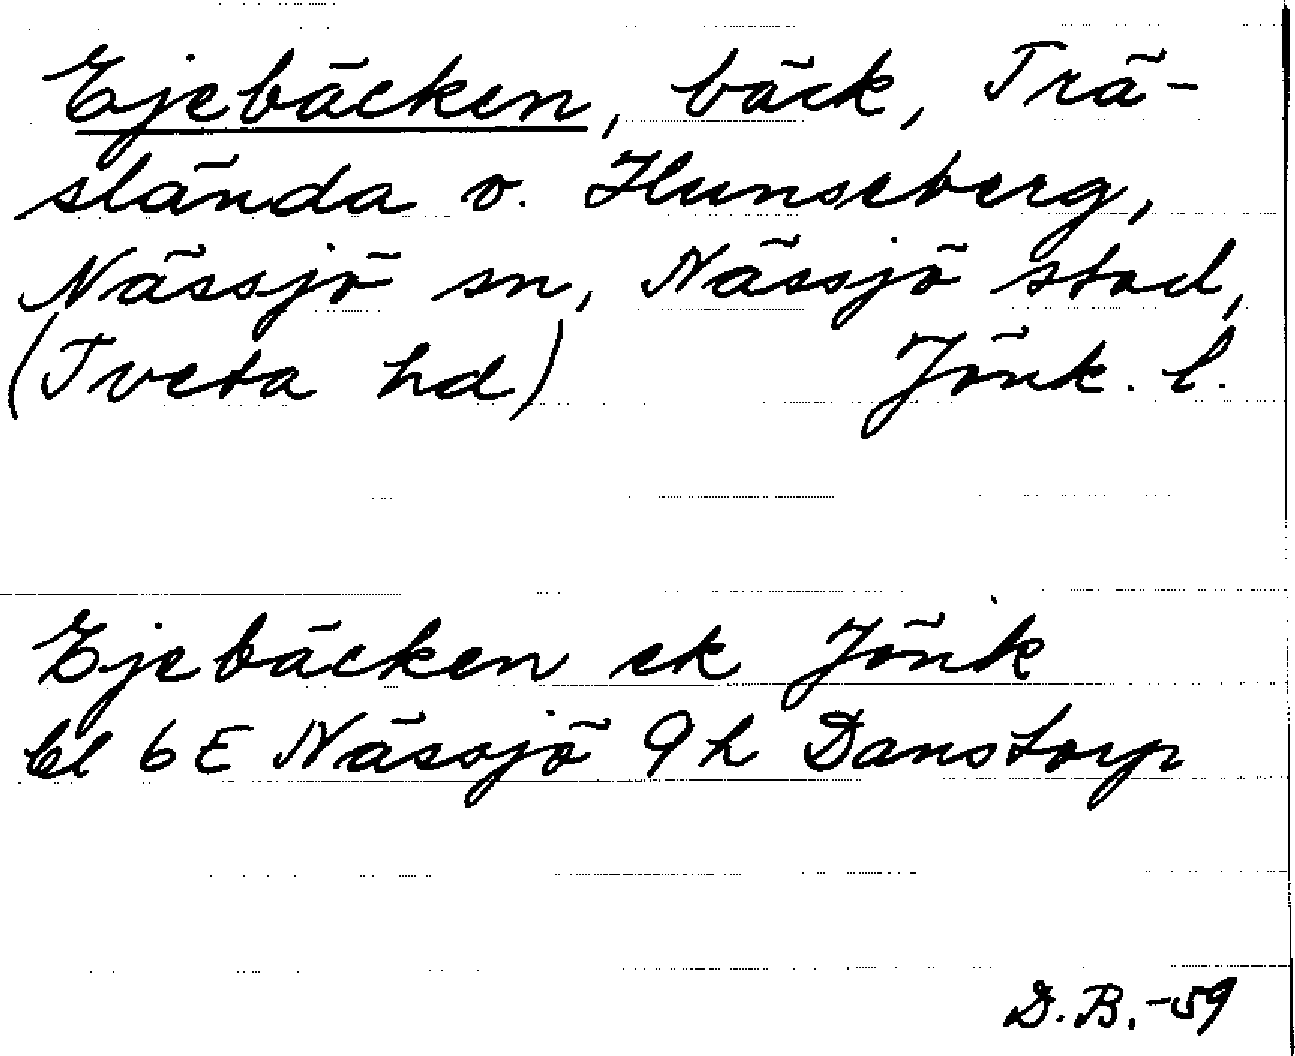 Ejebäcken, bäck, Trä-
slända v. Hunseberg,
Nässjö sn, Nässjö stad,
(Tveta hd) Jönk. l.
Ejebäcken ek Jönk
bl 6E Nässjö 9h Danstorp
D.B.-59